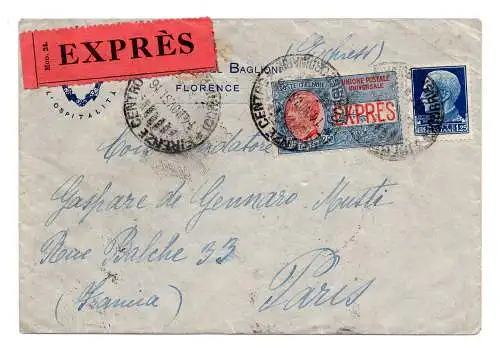 Mod. 24.
EXPRÈS
(Espresso)
L BAGLIONI
FLORENCE
L'OSPITALITÀ
UNIONE POSTALE
UNIVERSALE
POSTE ITALIANE
EXPRÈS
FIRENZE CENTRO
1,25
Commendatore
Gaspare de Gennaro Musti
Rue Balche 33
Paris
(Francia)